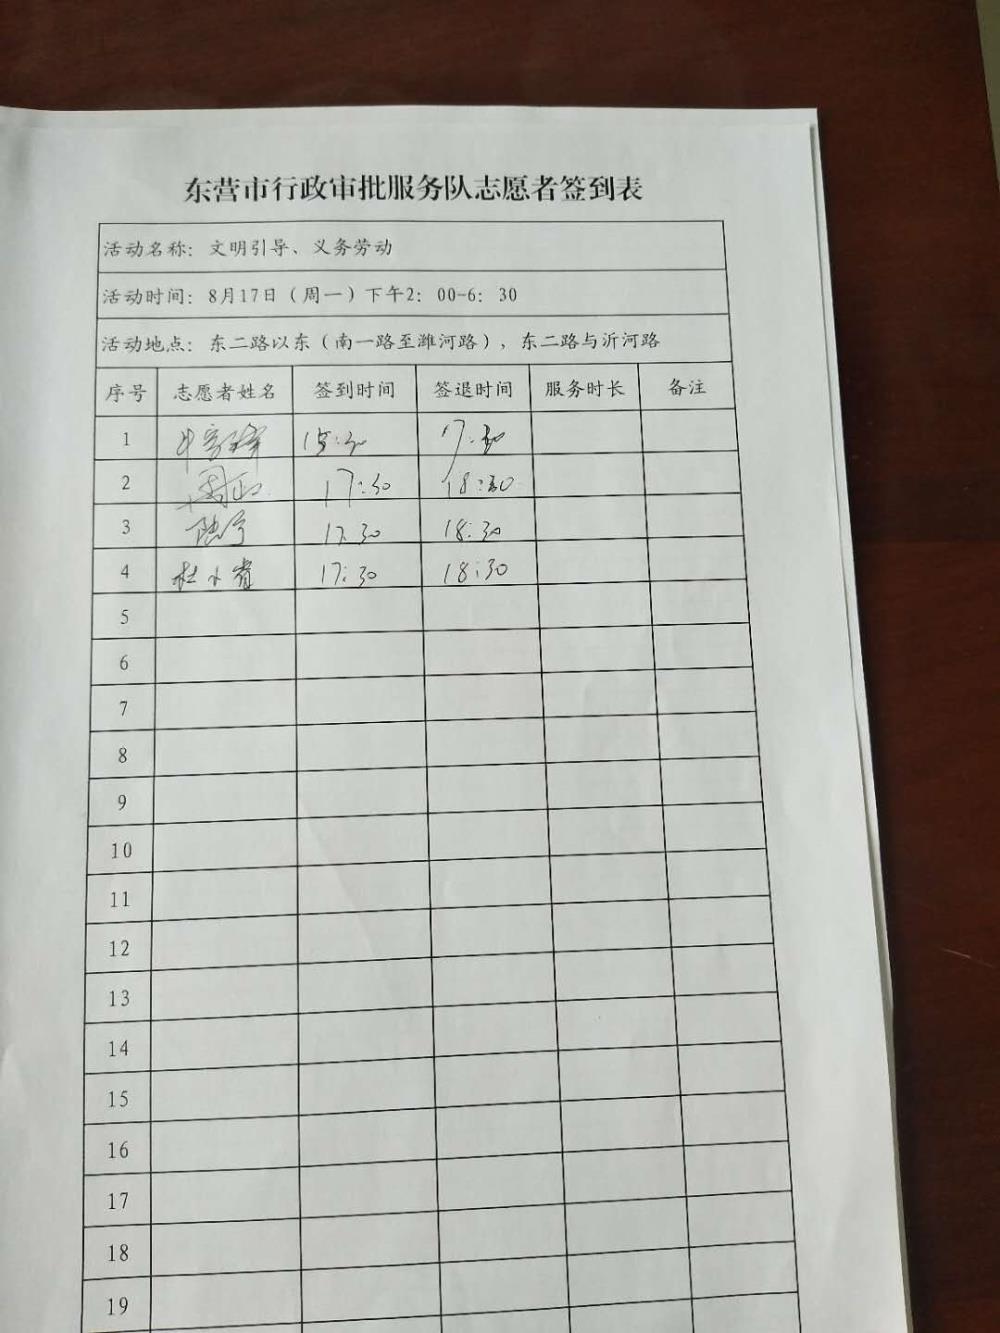 东营市行政审批服务队志愿者签到表
活动名称：文明引导、义务劳动
活动时间：8月17日（周一）下午2：00-6：30
活动地点：东二路以东（南一路至潍河路），东二路与沂河路
序号 志愿者姓名 签到时间 签退时间 服务时长 备注
1 15:30 17:30
2 周正 17:30 18:30
3 17:30 18:30
4 17:30 18:30
5
6
7
8
9
10
11
12
13
14
15
16
17
18
19